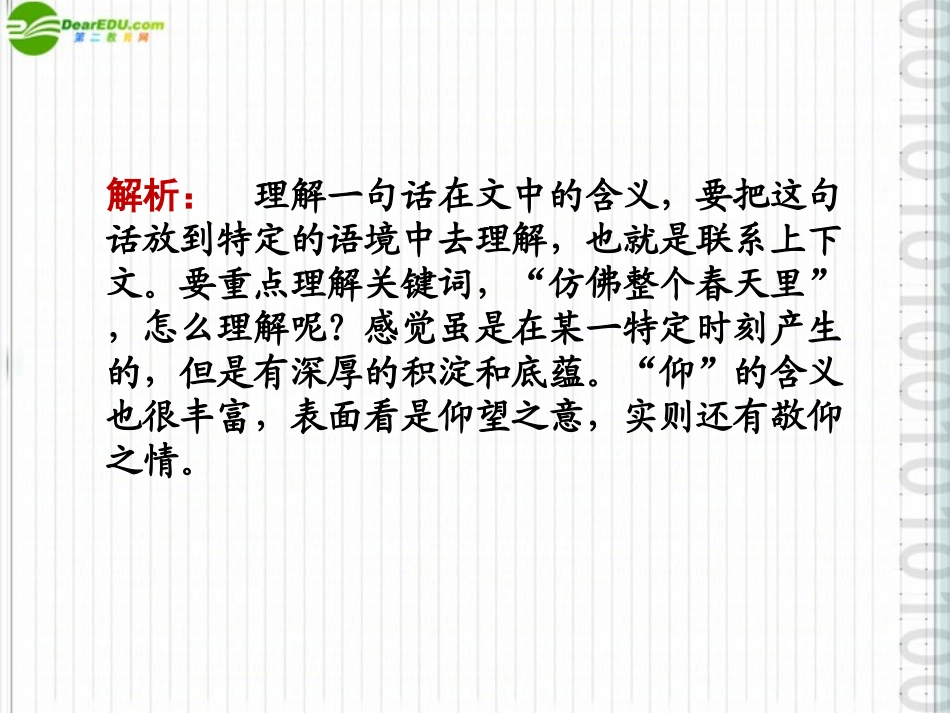 DearEDU.com
第二教育网
解析： 理解一句话在文中的含义，要把这句
话放到特定的语境中去理解，也就是联系上下
文。要重点理解关键词，“仿佛整个春天里”
，怎么理解呢？感觉虽是在某一特定时刻产生
的，但是有深厚的积淀和底蕴。“仰”的含义
也很丰富，表面看是仰望之意，实则还有敬仰
之情。